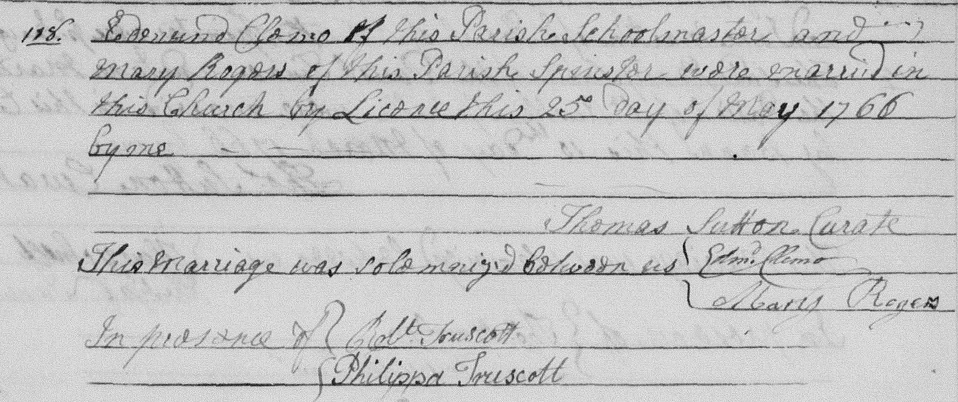 118. Edmund Clemo of this Parish Schoolmaster and
Mary Rogers of this Parish Spinster were married in
this Church by Licence this 25th Day of May 1766
by me
Thomas Sutton Curate
This Marriage was solemnized between us { Edmd. Clemo
{ Mary Rogers
In presence of } Robt. Truscott
{ Philippa Truscott